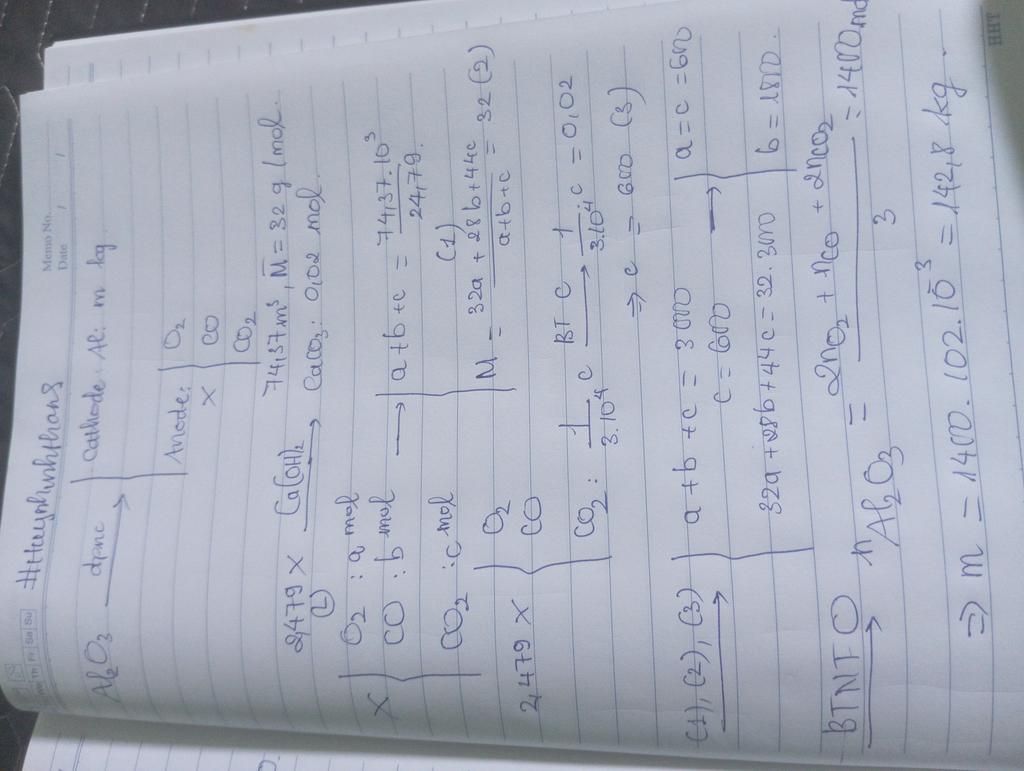 Memo No.
Date / /
Th Fr Sa Su
#Huynhnhnhthang
Al2O3 đpnc → Cathode: Al: m kg
Anode: X
O2
CO
CO2
74,37 m³, M̄ = 32 g/mol.
2,479 X (L) Ca(OH)2 → CaCO3: 0,02 mol
X
O2 : a mol
CO : b mol
CO2 : c mol
→ a + b + c = 74,37.10³ / 24,79 (1)
M = 32a + 28b + 44c / a+b+c = 32 (2)
2,479 X
O2
CO
CO2 : 1/3.10⁴ c BT C → 1/3.10⁴ . c = 0,02
=> c = 600 (3)
(1), (2), (3) →
a + b + c = 3000
c = 600
32a + 28b + 44c = 32.3000
→
a = c = 600
b = 1800.
BTNT O → nAl2O3 = 2nO2 + nCO + 2nCO2 / 3 = 1400 mol
=> m = 1400.102.10⁻³ = 142,8 kg.
HHT